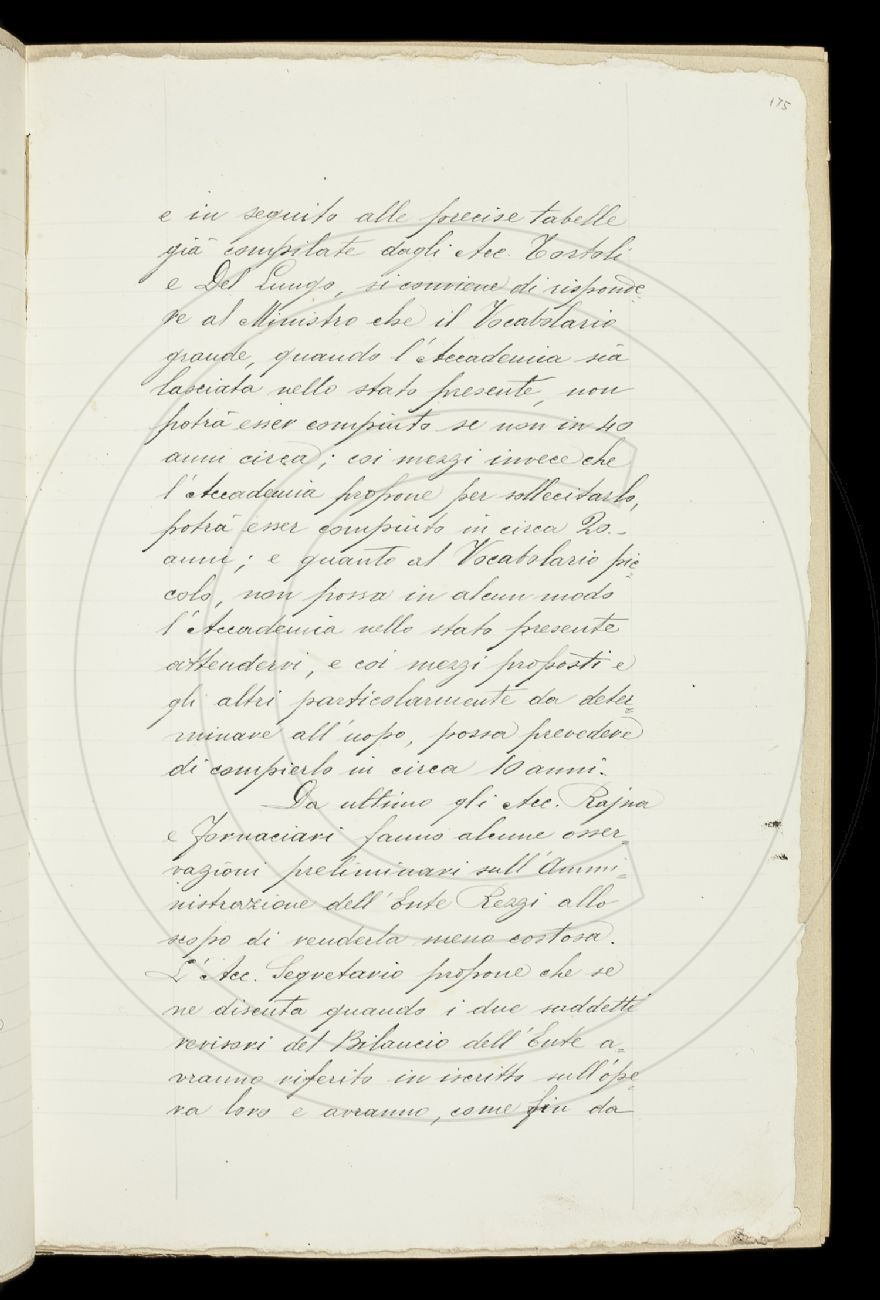 175
e in seguito alle precise tabelle
già compilate dagli Acc. Tortoli
e Del Lungo, si conviene di risponde=
re al Ministro che il Vocabolario
grande, quando l'Accademia sia
lasciata nello stato presente, non
potrà esser compiuto se non in 40
anni circa; coi mezzi invece che
l'Accademia propone per sollecitarlo,
potrà esser compiuto in circa 20.-
anni; e quanto al Vocabolario pic=
colo, non possa in alcun modo
l'Accademia nello stato presente
attendervi, e coi mezzi proposti e
gli altri particolarmente da deter=
minare all'uopo, possa prevedere
di compierlo in circa 10 anni.
Da ultimo gli Acc. Rajna
e Fornaciari fanno alcune osser=
vazioni preliminari sull'Ammi=
nistrazione dell'Ente Rezzi allo
scopo di renderla meno costosa.
L'Acc. Segretario propone che se
ne discuta quando i due suddetti
revisori del Bilancio dell'Ente a=
vranno riferito in iscritto sull'ope=
ra loro e avranno, come fin da